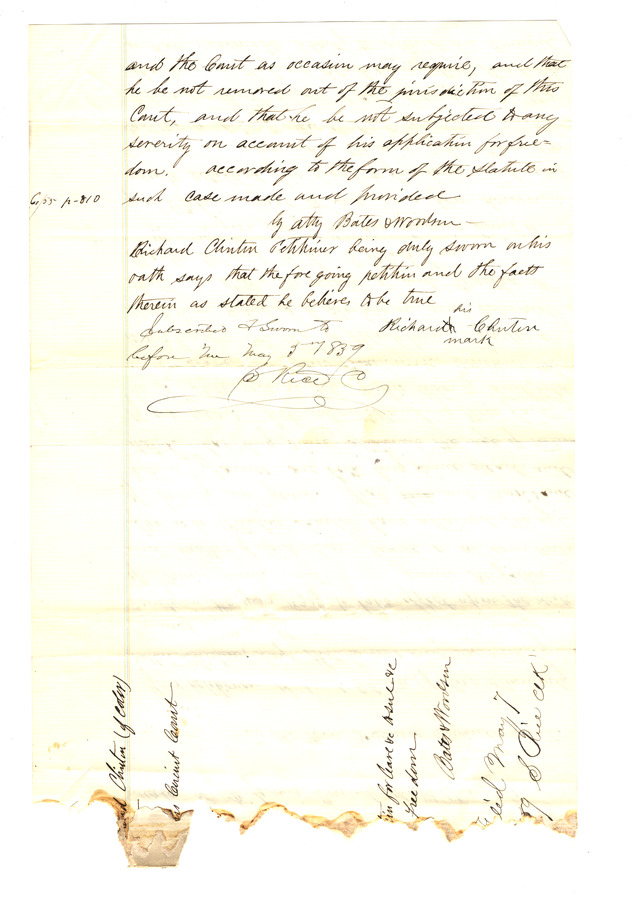 and the Court as occasion may require, and that
he be not removed out of the jurisdiction of this
Court, and that he be not subjected to any
severity on account of his application for free=
dom. according to the form of the statute in
such case made and provided
p-810
by atty Bates & Woodson
Richard Clinton Petitioner being duly sworn on his
oath says that the fore going petition and the facts
therein as stated he believes to be true
Subscribed & Sworn to
before me May 1839
his
Richard X Clinton
mark
Clinton (of color)
Circuit Court
for leave to sue &c
Freedom
Bates & Woodson
Filed May 7
39 S Rice clk